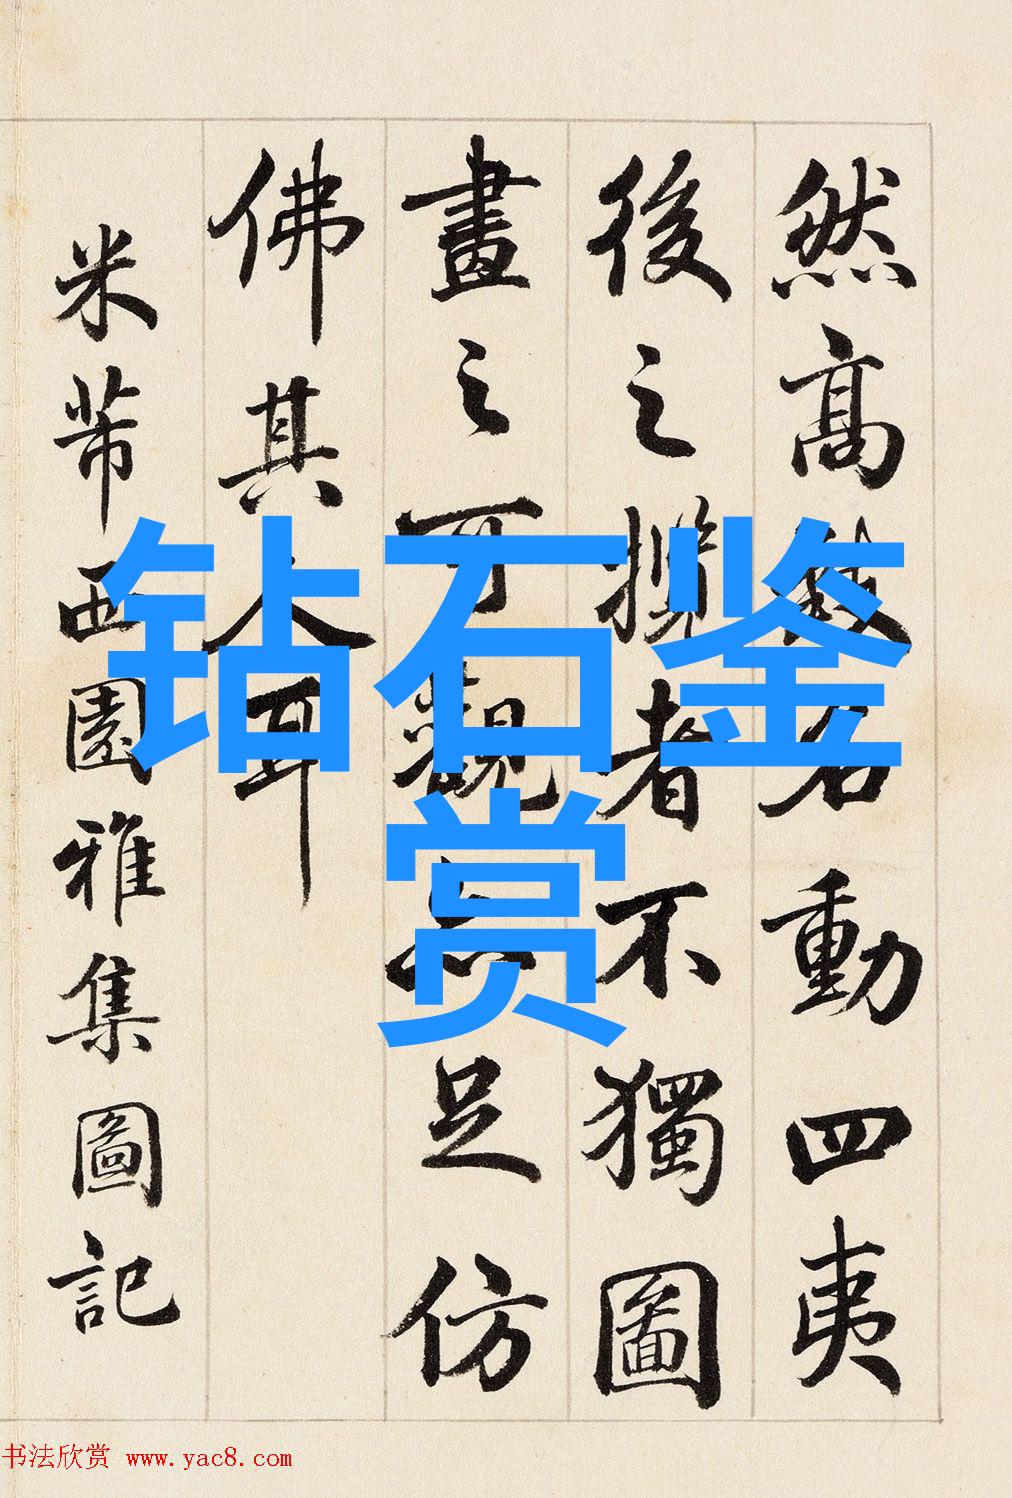 然高致名動四夷
後之攬者不獨圖
畫之可觀亦足仿
佛其人耳
米芾西園雅集圖記
钻石鉴
赏
书法欣赏 www.yac8.com